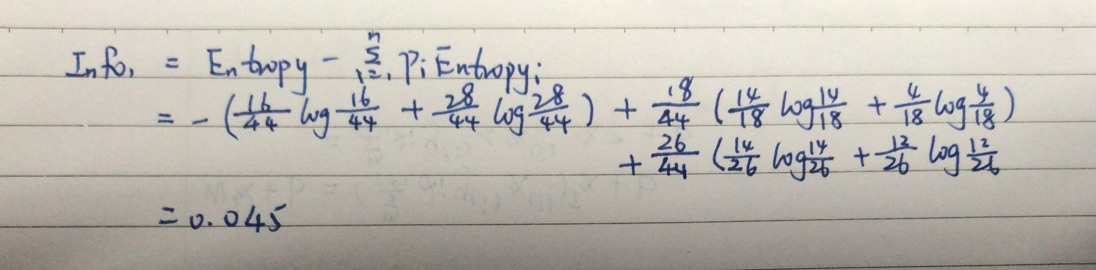 Info₁ = Entropy - \sum_{i=1}^{n} Pi Entropyi
= - (16/44 log 16/44 + 28/44 log 28/44) + 18/44 (14/18 log 14/18 + 4/18 log 4/18)
+ 26/44 (14/26 log 14/26 + 12/26 log 12/26
= 0.045